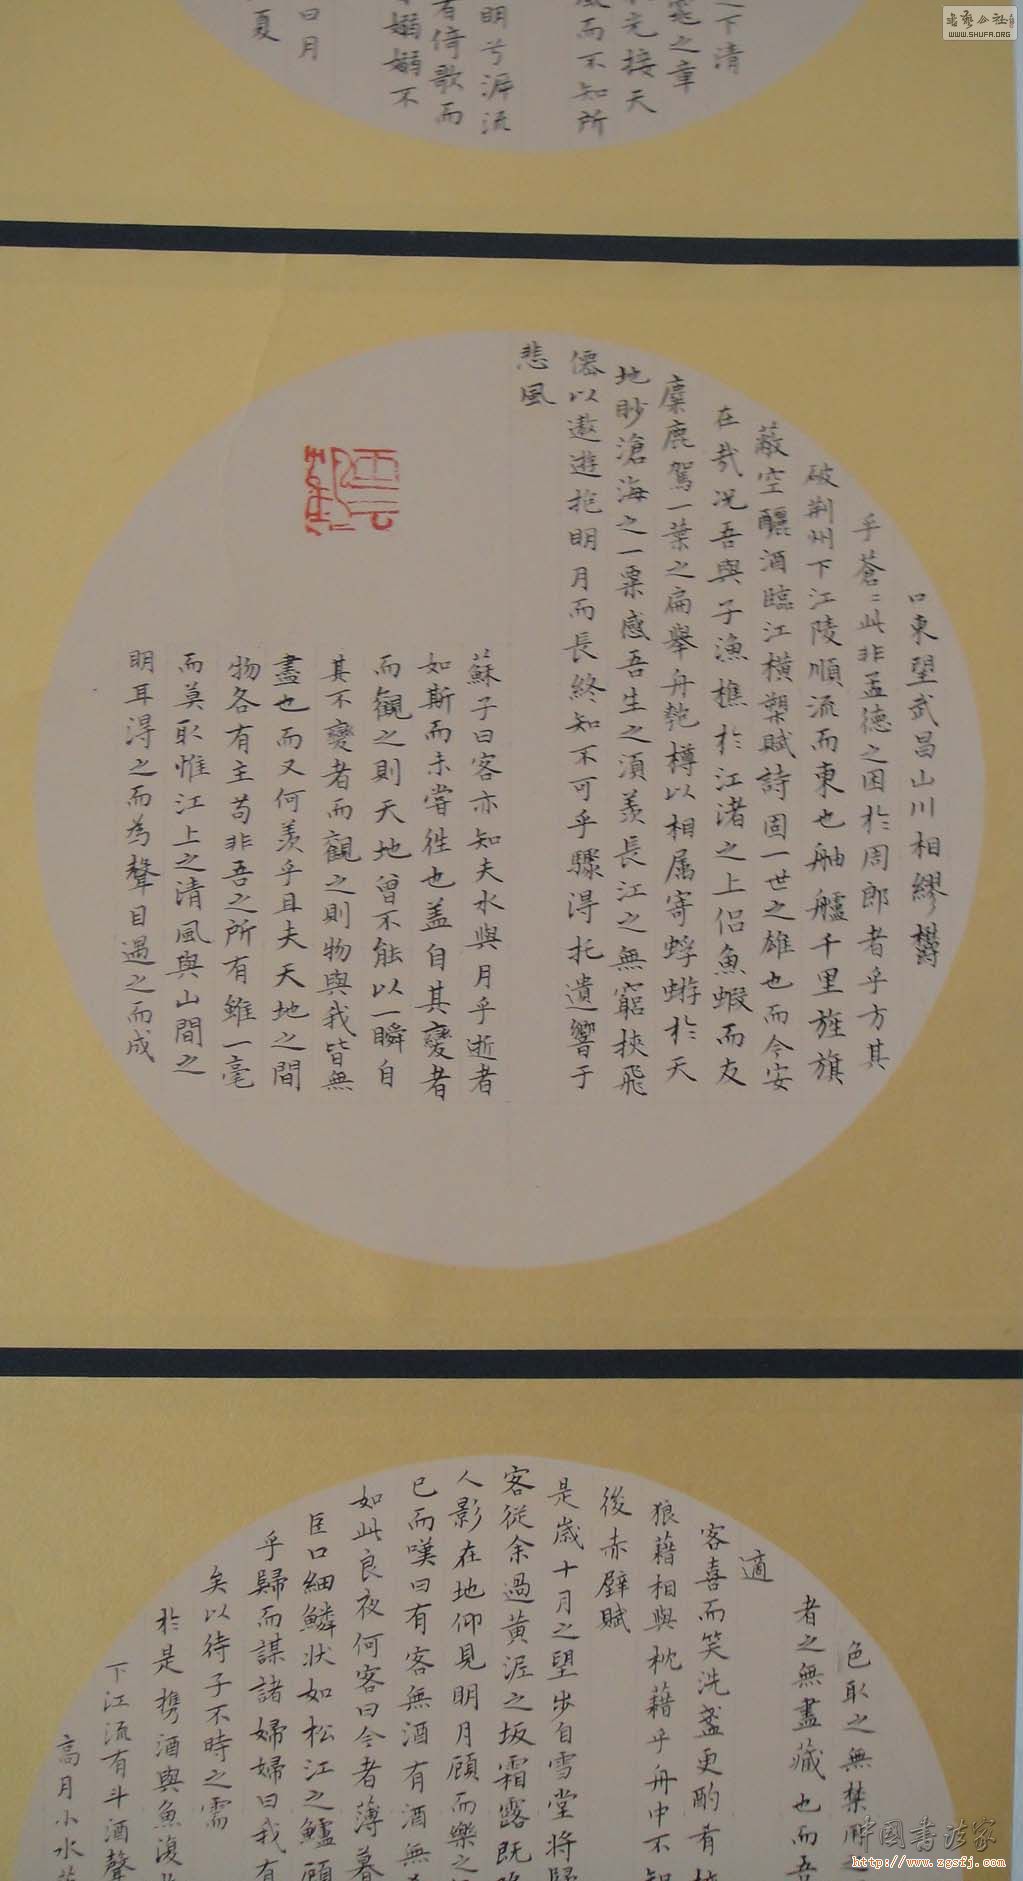 下清
之章
光接天
風而不知所
明兮泝流
有倚歌而
嫋嫋不
日月
夏
WWW.SHUFA.ORG
口東望武昌山川相繆欝
乎蒼〻此非孟德之困於周郎者乎方其
破荆州下江陵順流而東也舳艫千里旌旗
蔽空釃酒臨江横槊賦詩固一世之雄也而今安
在㢤况吾與子漁樵於江渚之上侣魚蝦而友
麋鹿駕一葉之扁舉舟匏樽以相属寄蜉蝣於天
地眇滄海之一粟感吾生之湏羡長江之無窮挾飛
僊以遨遊抱明月而長終知不可乎驟得托遺響于
悲風
蘇子曰客亦知夫水與月乎逝者
如斯而未嘗徃也盖自其變者
而觀之則天地曾不能以一瞬自
其不變者而觀之則物與我皆無
盡也而又何羡乎且夫天地之間
物各有主苟非吾之所有雖一毫
而莫取惟江上之清風與山間之
明耳得之而為聲目遇之而成
色取之無禁用之
者之無盡藏也而吾
適
客喜而笑洗盞更酌肴
狼藉相與枕藉乎舟中不知
後赤壁賦
是歲十月之望步自雪堂将歸
客從余過黄泥之坂霜露既
人影在地仰見明月顧而樂之
已而嘆曰有客無酒有酒無
如此良夜何客曰今者薄暮
巨口細鱗状如松江之鱸顧
乎歸而謀諸婦婦曰我有
矣以待子不時之需
於是携酒與魚復
下江流有斗酒聲
高月小水落
中国書法家
http://www.zgsfj.com